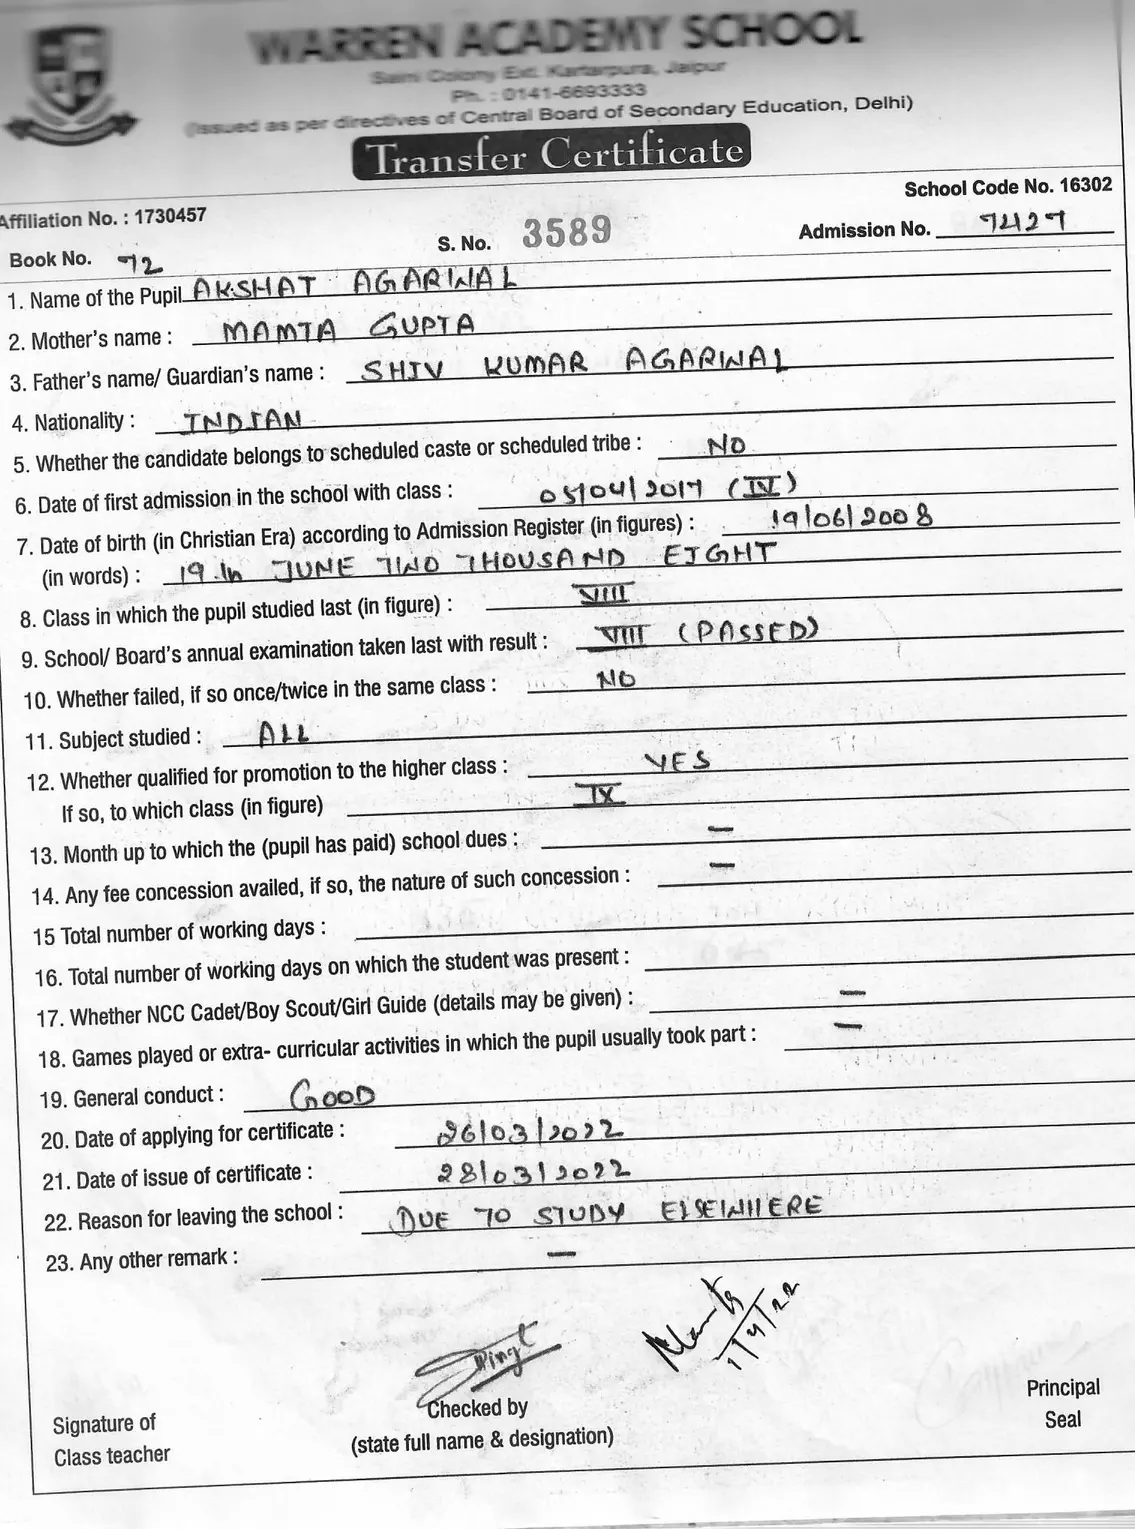 WARREN ACADEMY SCHOOL
Saini Colony Ext. Kartarpura, Jaipur
Ph. : 0141-6693333
(Issued as per directives of Central Board of Secondary Education, Delhi)
Transfer Certificate
School Code No. 16302
Affiliation No. : 1730457
S. No. 3589
Admission No. 7427
Book No. 72
1. Name of the Pupil AKSHAT AGARWAL
2. Mother's name : MAMTA GUPTA
3. Father's name/ Guardian's name : SHIV KUMAR AGARWAL
4. Nationality : INDIAN
5. Whether the candidate belongs to scheduled caste or scheduled tribe : NO
6. Date of first admission in the school with class : 05/04/2017 (IV)
7. Date of birth (in Christian Era) according to Admission Register (in figures) : 19/06/2008
(in words) : 19th JUNE TWO THOUSAND EIGHT
8. Class in which the pupil studied last (in figure) : VIII
9. School/ Board's annual examination taken last with result : VIII (PASSED)
10. Whether failed, if so once/twice in the same class : NO
11. Subject studied : ALL
12. Whether qualified for promotion to the higher class : YES
If so, to which class (in figure) IX
13. Month up to which the (pupil has paid) school dues : —
14. Any fee concession availed, if so, the nature of such concession : —
15 Total number of working days :
16. Total number of working days on which the student was present :
17. Whether NCC Cadet/Boy Scout/Girl Guide (details may be given) : —
18. Games played or extra- curricular activities in which the pupil usually took part : —
19. General conduct : GOOD
20. Date of applying for certificate : 26/03/2022
21. Date of issue of certificate : 28/03/2022
22. Reason for leaving the school : DUE TO STUDY ELSEWHERE
23. Any other remark : —
1/4/22
Signature of
Class teacher
Checked by
(state full name & designation)
Principal
Seal